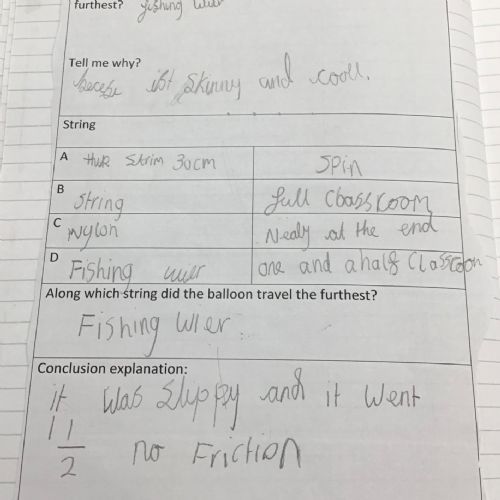 furthest? fishing wier
Tell me why?
becesu ist skinny and cooll.
String
A Strim 30cm Spin
B String full Cbassroom
C Nylon Nealy at the end
D Fishing wier one and a half Classroon
Along which string did the balloon travel the furthest?
Fishing wier.
Conclusion explanation:
it Was Slyppy and it Went
1 1/2 no Friction